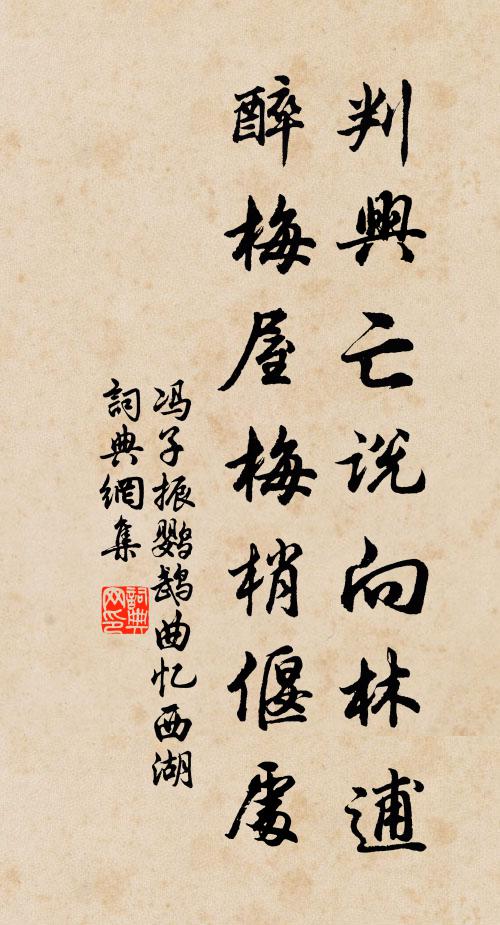 判興亡説向林逋
醉梅屋梅梢偃處
冯子振鹦鹉曲忆西湖
詞典網集
詞典
网印